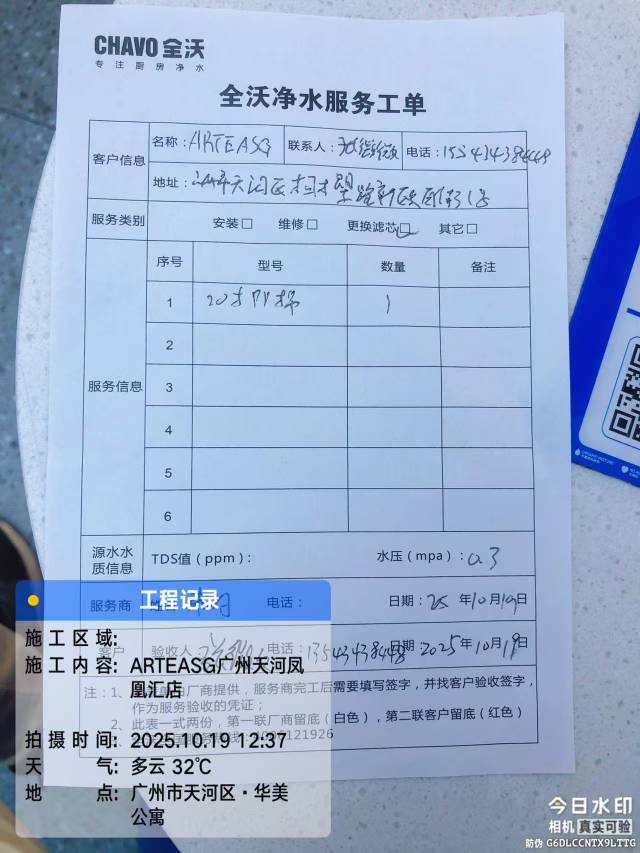 CHAVO 全沃
专注厨房净水
全沃净水服务工单
客户信息
名称: ARTEASG 联系人: 电话:
地址:
服务类别 安装 维修 更换滤芯 其它
服务信息
序号 型号 数量 备注
1 20寸PP棉 1
2
3
4
5
6
源水水质信息 TDS值(ppm): 水压(mpa): 0.3
服务商 电话: 日期: 25年10月19日
客户 验收人 13543438448 日期 2025年10月19日
注:1、 厂商提供,服务商完工后需要填写签字,并找客户验收签字,
作为服务验收的凭证;
2、此表一式两份,第一联厂商留底(白色),第二联客户留底(红色)
工程记录
施工区域:
施工内容: ARTEASG广州天河凤
凰汇店
拍摄时间: 2025.10.19 12:37
天气: 多云 32℃
地点: 广州市天河区·华美
公寓
今日水印
相机 真实可验
防伪 G6DLCCNTX9LTTG